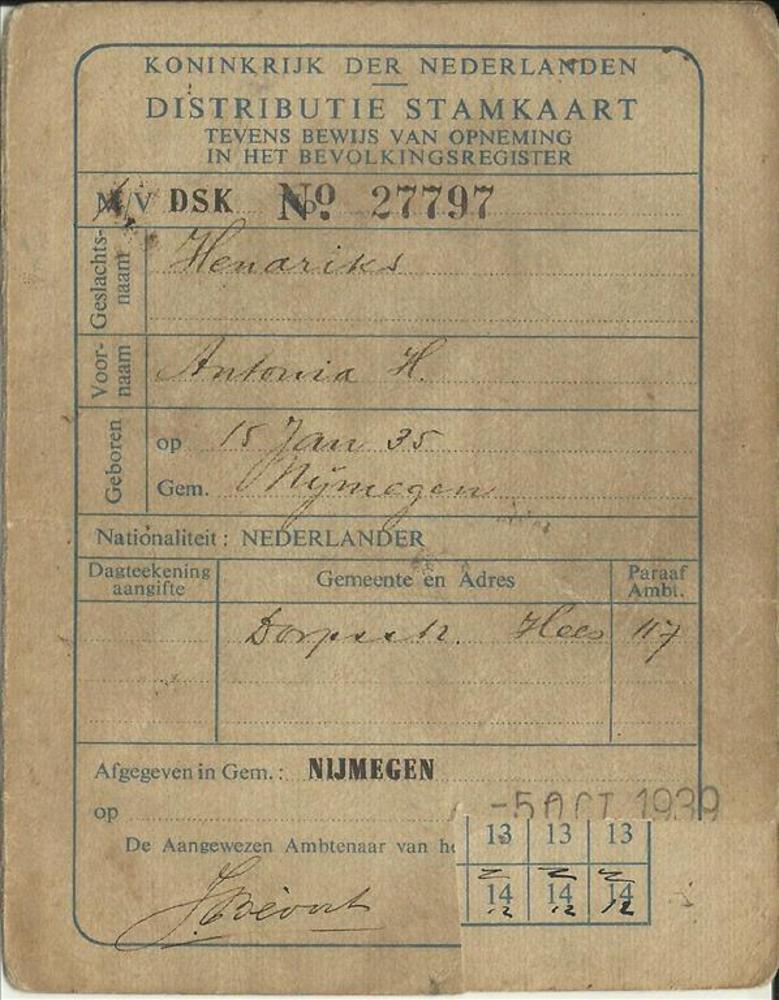 KONINKRIJK DER NEDERLANDEN
DISTRIBUTIE STAMKAART
TEVENS BEWIJS VAN OPNEMING
IN HET BEVOLKINGSREGISTER
M/V DSK No. 27797
Geslachts-
naam
Hendriks
Voor-
naam
Antonia H.
Geboren
op 15 Jan 35
Gem. Nijmegen
Nationaliteit: NEDERLANDER
Dagteekening
aangifte
Gemeente en Adres
Paraaf
Ambt.
Dorpsstr. Hees 117
Afgegeven in Gem.: NIJMEGEN
op -5 OCT 1939
De Aangewezen Ambtenaar van he
13 13 13
14 14 14
12 12 12